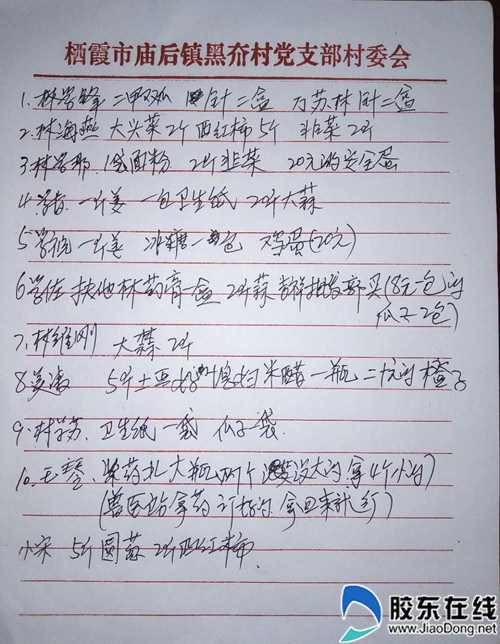 栖霞市庙后镇黑夼村党支部村委会
1. 林学峰 二甲双胍 二盒 万苏林针二盒
2. 林海燕 大头菜2斤 西红柿5斤 韭菜2斤
3. 林 1袋面粉 2斤韭菜 20元的 蛋
4. 学 一斤姜 一包卫生纸 20斤大蒜
5. 学 一斤姜 冰糖一包 鸡蛋(20元)
6. 学佐 扶他林药膏一盒 2斤蒜 批发部买(18元一包的
瓜子2包)
7. 林维刚 大蒜2斤
8. 5斤土豆 米醋一瓶 二 橙子
9. 林学 卫生纸一袋 瓜子一袋
10. 王琴 药 大瓶两个 没大的拿4个小的
(兽医站拿药 拿回来就行)
小宋 5斤圆 2斤西红柿
胶东在线
www.JiaoDong.net